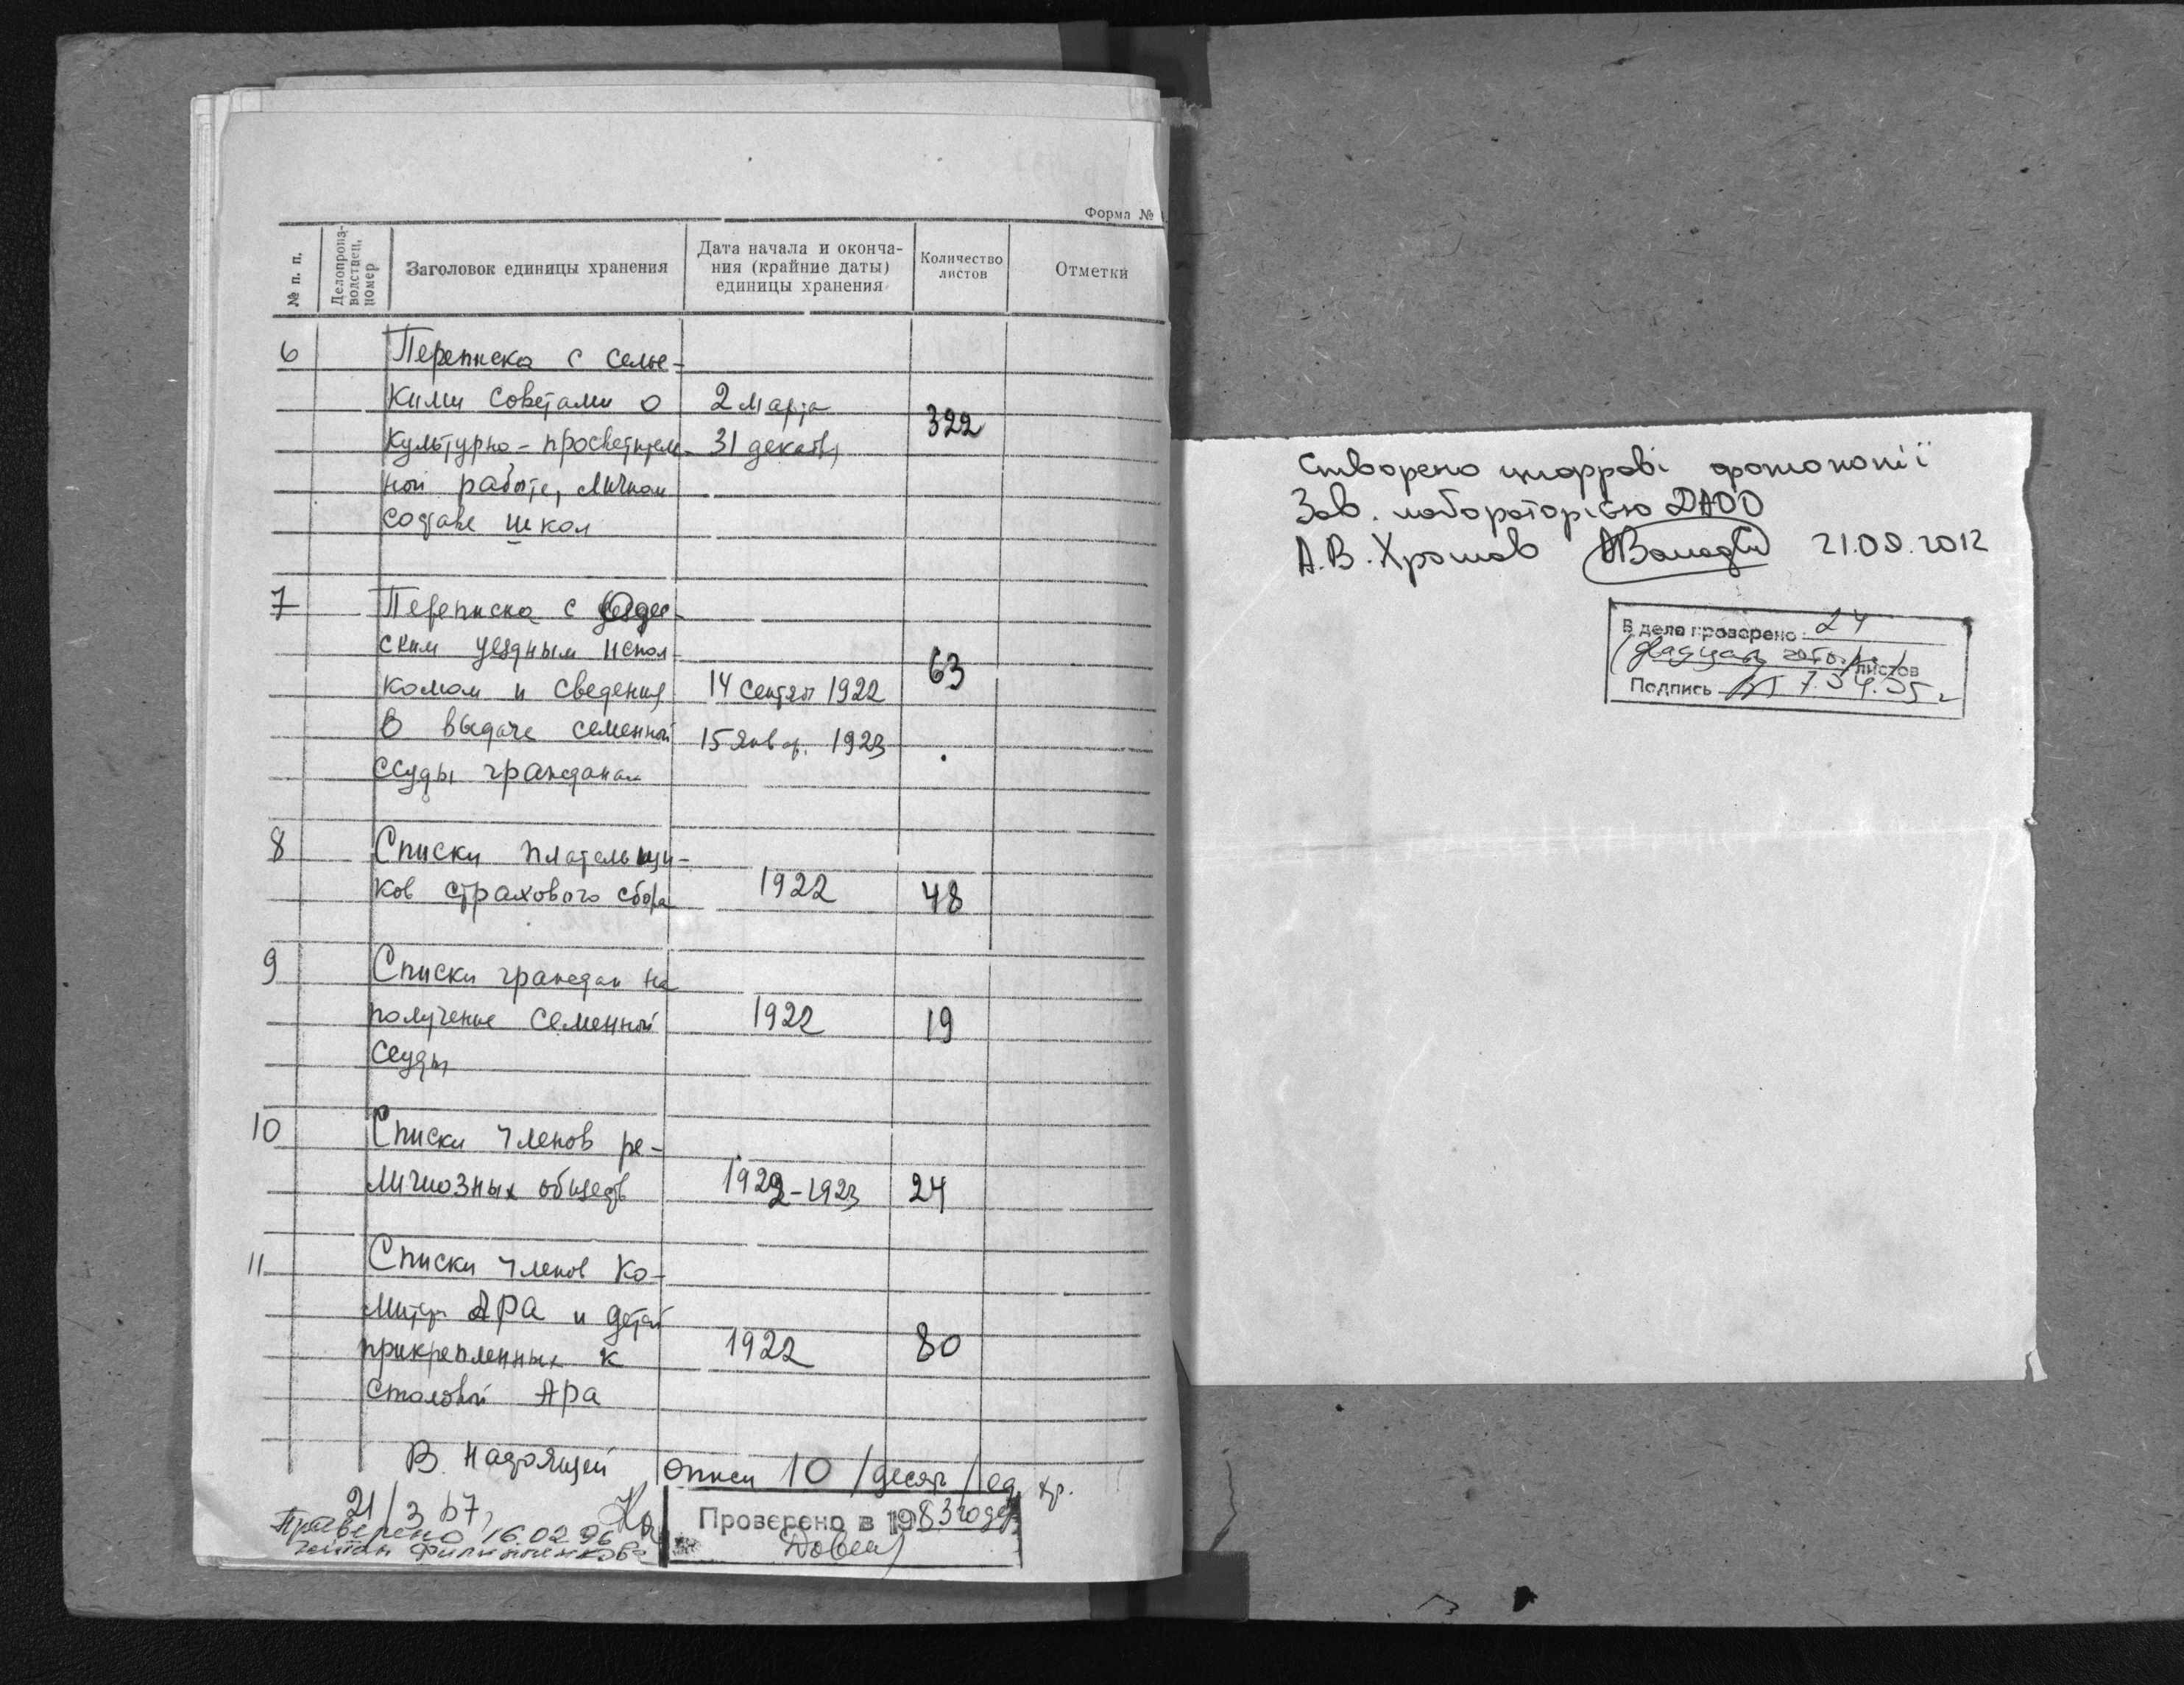 Форма №
№ п. п.
Делопроиз-
водствен.
номер
Заголовок единицы хранения
Дата начала и оконча-
ния (крайние даты)
единицы хранения
Количество
листов
Отметки
6 Переписка с сельс-
кими советами о 2 марта
322
культурно-просветител- 31 декабр
ной работе, личном
составе школ
7 Переписка с
ским уездным испол-
63
комом и сведения 14 сентяб 1922
о выдаче семенной 15 январ. 1923
ссуды гражданам
8 Списки плательщи-
ков страхового сбора 1922 48
9 Списки граждан на
получение семенной 1922 19
ссуды
10 Списки членов ре-
лигиозных обществ 1922-1923 24
11 Списки членов Ко-
митета АРА и детей
прикрепленных к 1922 80
столовой АРА
В настоящей описи 10 /десять/ ед. хр.
21/3 67,
Проверено в 1983 году
Проверено 16.02.96
Створено цифрові фотокопії
Зав. лабораторією ДАОО
А.В. Хромов 21.09.2012
В деле проверено 24
(двадцать четыре) листов
Подпись